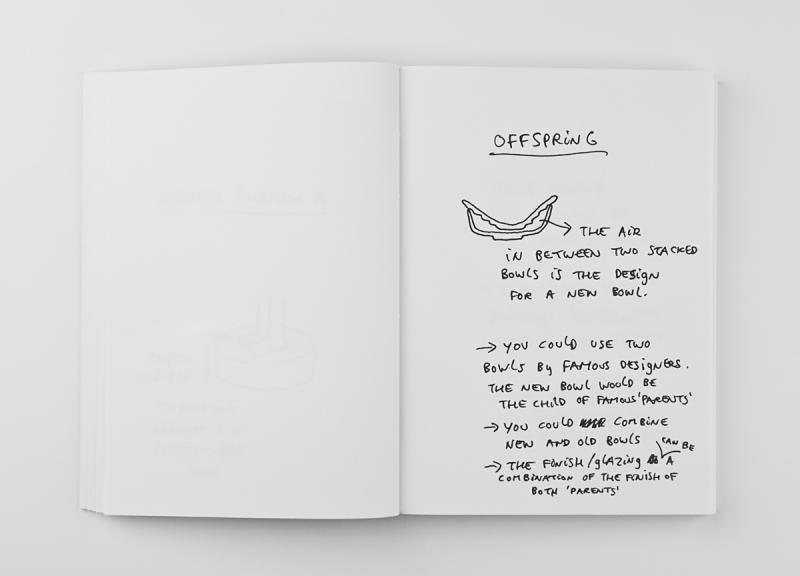 OFFSPRING
→ THE AIR
IN BETWEEN TWO STACKED
BOWLS IS THE DESIGN
FOR A NEW BOWL.
→ YOU COULD USE TWO
BOWLS By FAMOUS DESIGNERS.
THE NEW BOWL WOULD BE
THE CHILD OF FAMOUS 'PARENTS'
→ YOU COULD COMBINE
NEW AND OLD BOWLS
→ THE FINISH/glAZING CAN BE A
COMBINATION OF THE FINISH OF
BOTH 'PARENTS'